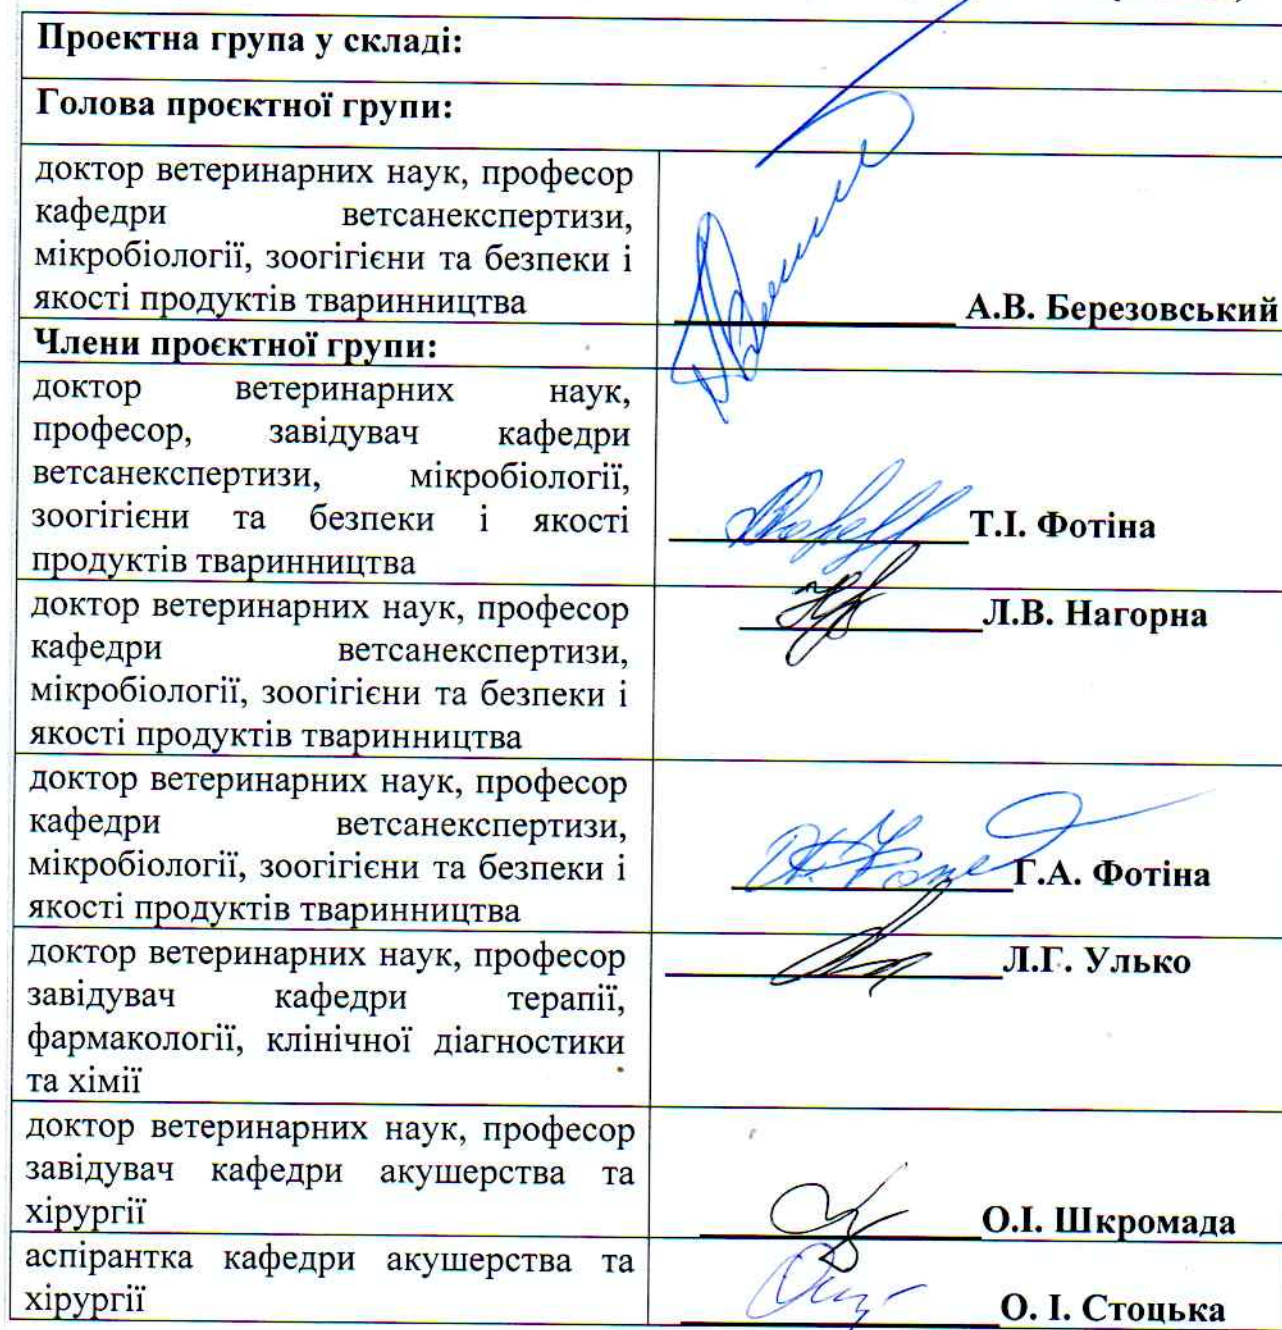 Проектна група у складі:
Голова проєктної групи:
доктор ветеринарних наук, професор
кафедри ветсанекспертизи,
мікробіології, зоогігієни та безпеки і
якості продуктів тваринництва
А.В. Березовський
Члени проєктної групи:
доктор ветеринарних наук,
професор, завідувач кафедри
ветсанекспертизи, мікробіології,
зоогігієни та безпеки і якості
продуктів тваринництва
Т.І. Фотіна
доктор ветеринарних наук, професор
кафедри ветсанекспертизи,
мікробіології, зоогігієни та безпеки і
якості продуктів тваринництва
Л.В. Нагорна
доктор ветеринарних наук, професор
кафедри ветсанекспертизи,
мікробіології, зоогігієни та безпеки і
якості продуктів тваринництва
Г.А. Фотіна
доктор ветеринарних наук, професор
завідувач кафедри терапії,
фармакології, клінічної діагностики
та хімії
Л.Г. Улько
доктор ветеринарних наук, професор
завідувач кафедри акушерства та
хірургії
О.І. Шкромада
аспірантка кафедри акушерства та
хірургії
О. І. Стоцька